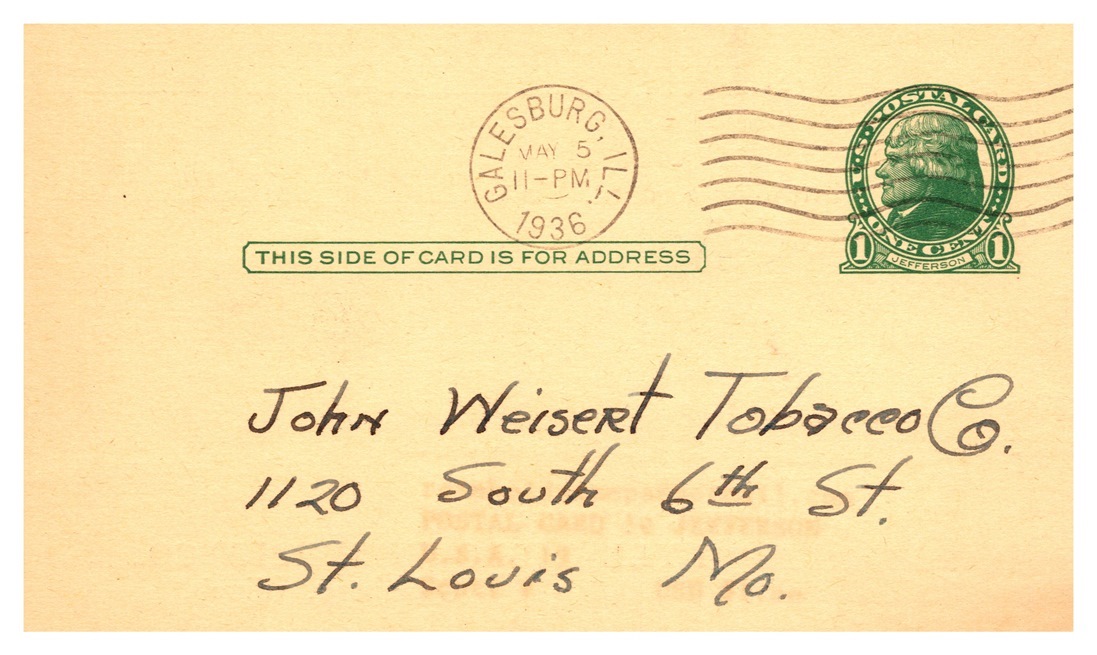 GALESBURG, ILL.
MAY 5
11-PM
1936
U.S. POSTAL CARD
ONE CENT
1 1
JEFFERSON
THIS SIDE OF CARD IS FOR ADDRESS
John Weisert Tobacco Co.
1120 South 6th St.
St. Louis Mo.
POSTAL CARD 1c JEFFERSON